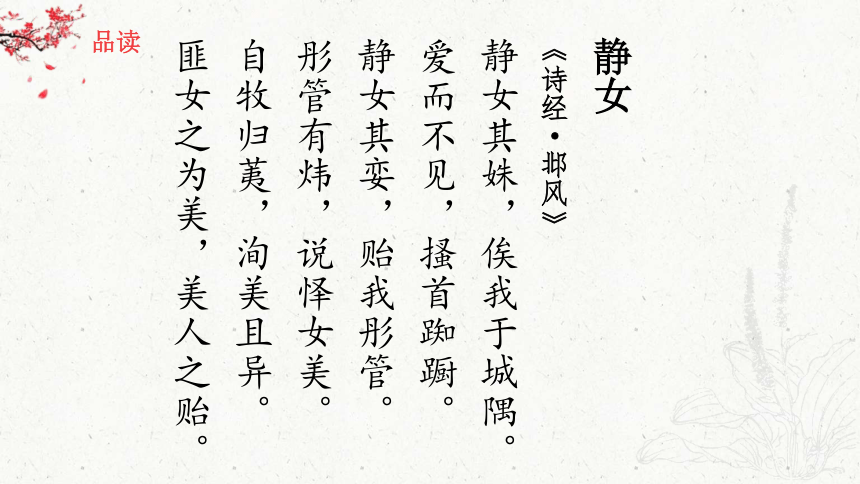 品读
静女
《诗经·邶风》
静女其姝，俟我于城隅。
爱而不见，搔首踟蹰。
静女其娈，贻我彤管。
彤管有炜，说怿女美。
自牧归荑，洵美且异。
匪女之为美，美人之贻。